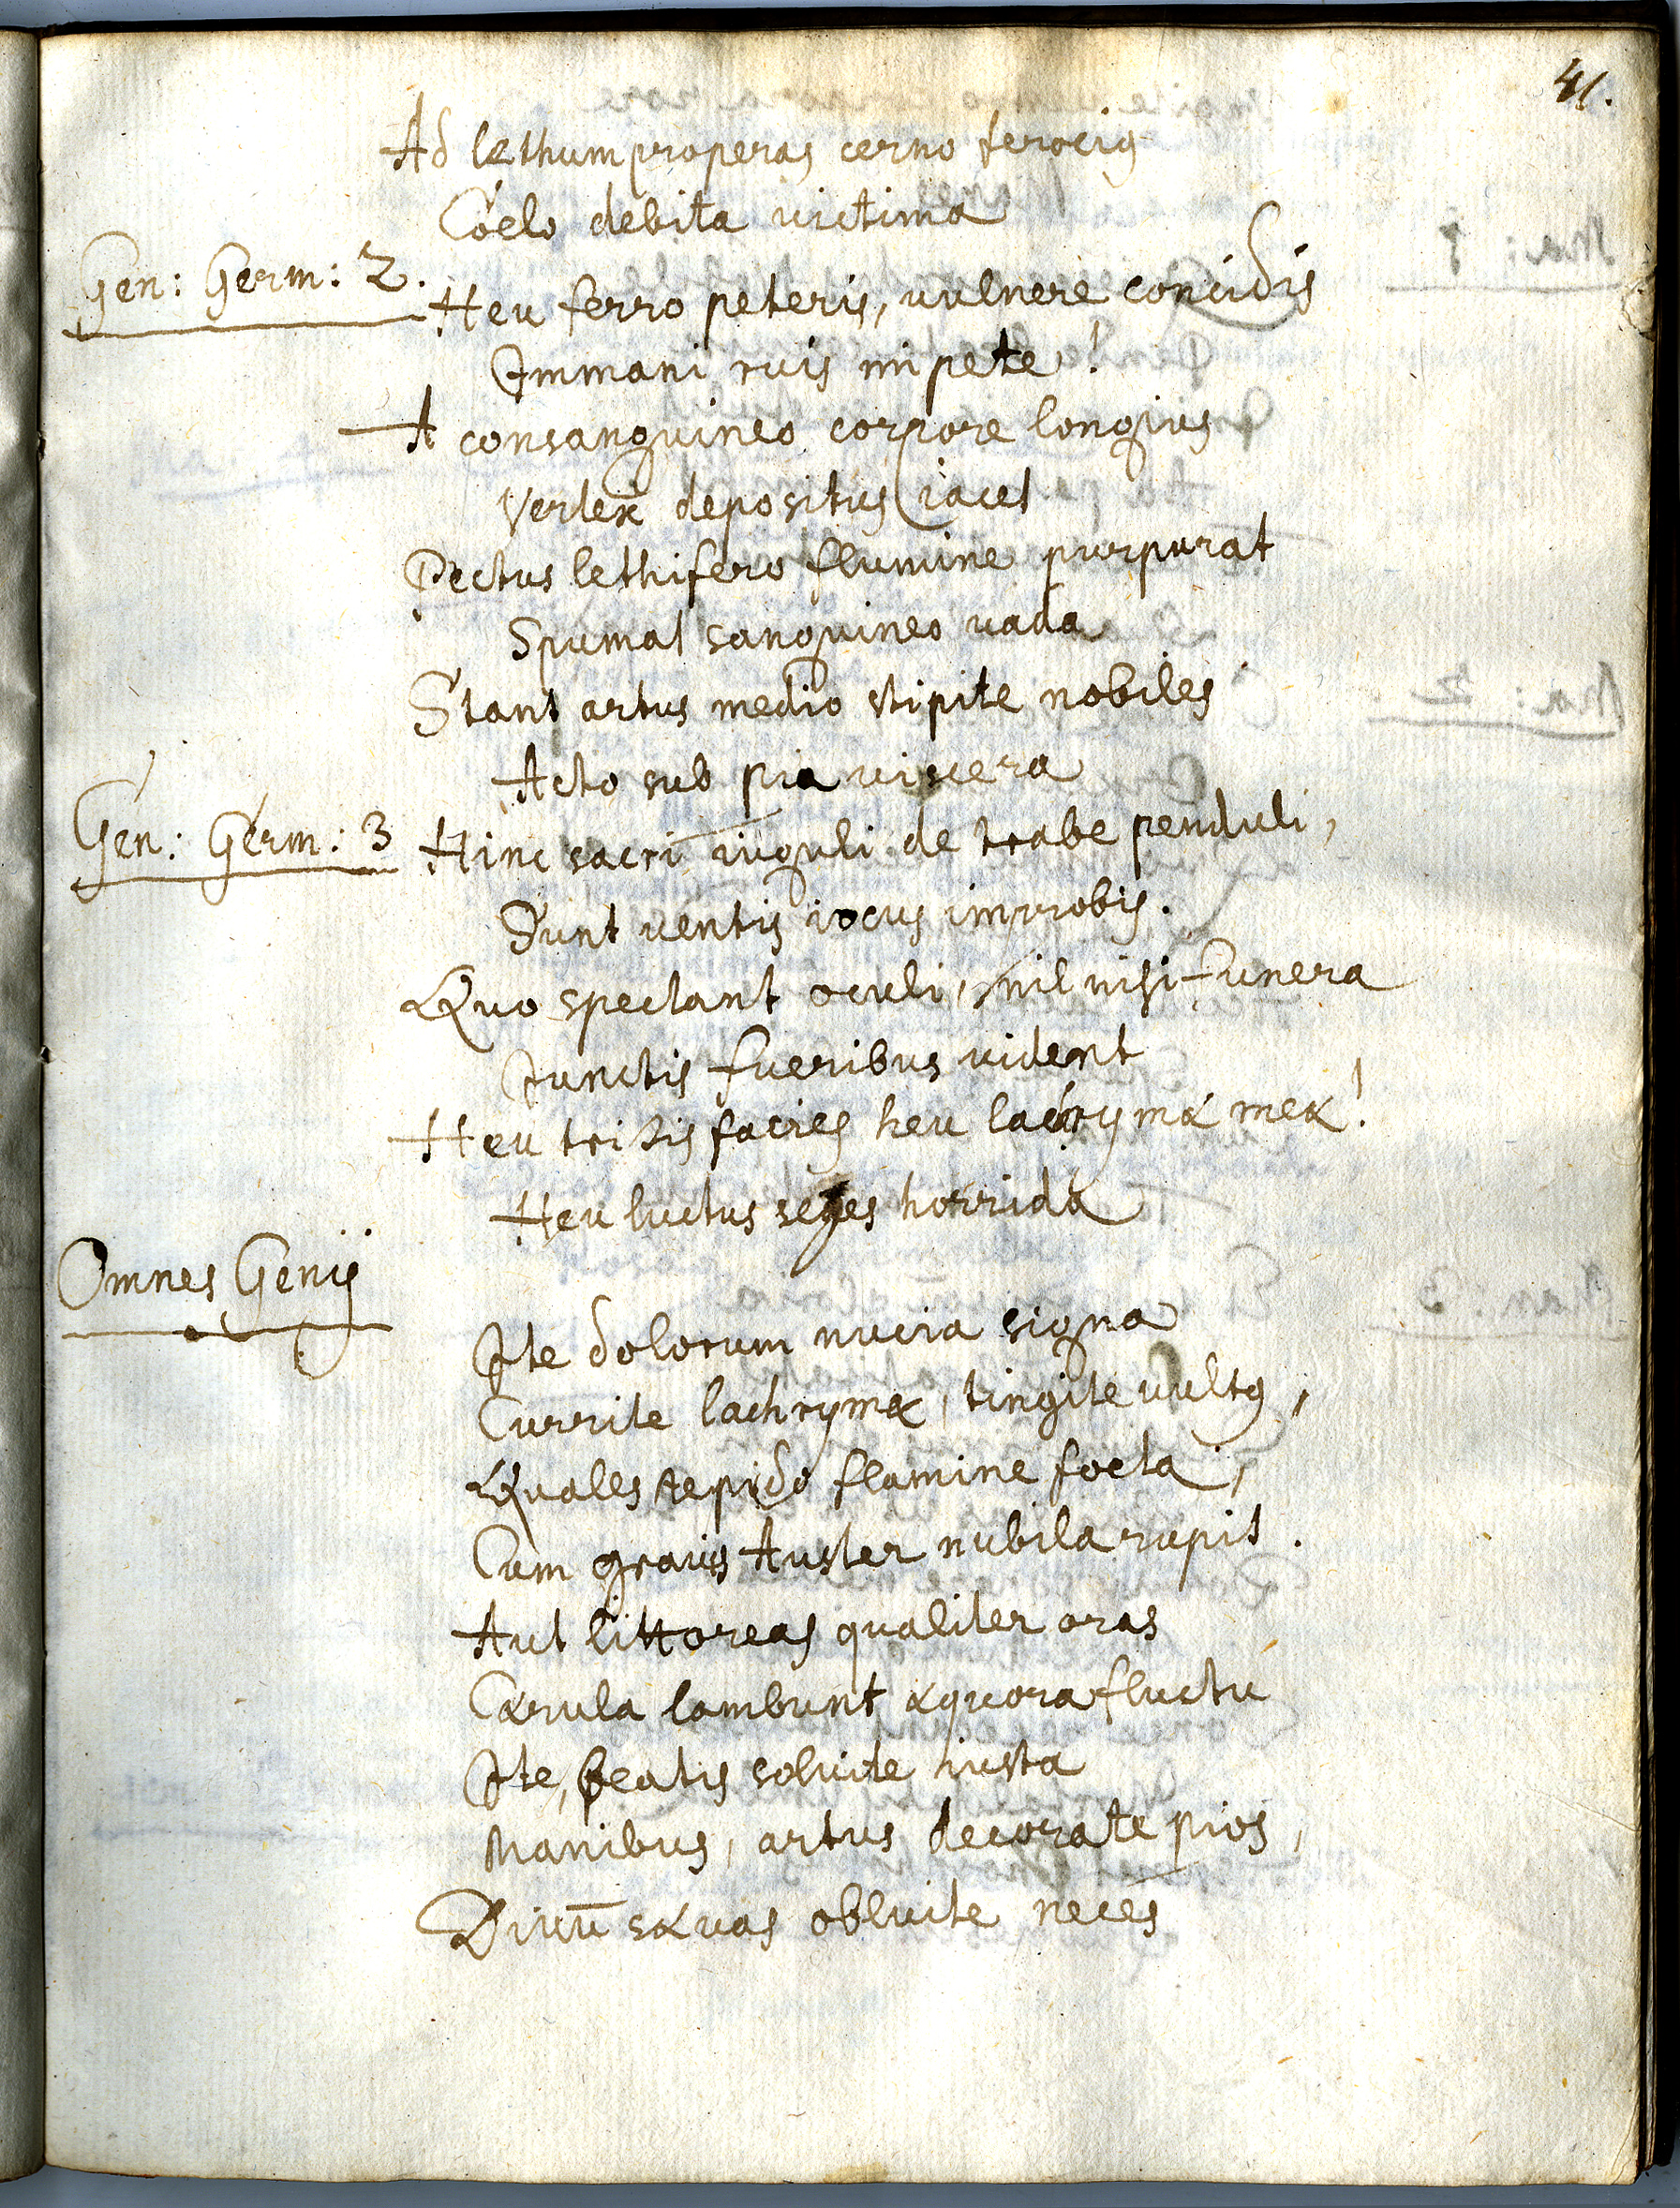 41.
Ad læthum properas cerno ferociꝰ
Coelo debita victima
Gen: Germ: 2.
Heu ferro peteris, vulnere concidis
Immani ruis impete!
A consanguineo corpore longius
Vertex depositus iacet
Pectus lethifero flumine purpurat
Spumat sanguineo vada
Stant artus medio stipite nobiles
Acto sub pia viscera
Gen: Germ: 3
Hinc sacri iuguli de trabe penduli,
Sunt ventis iocus improbis.
Quo spectant oculi, nil nisi funera
Iunctis fueribus vident
Heu tristis facies heu lacrymæ meæ!
Heu luctus seges horrida
Omnes Genij
Ite dolorum nucia signa
Currite lachrymæ, tingite vultꝰ,
Quales tepido flamine foeta,
Cum gravis Auster nubila rupit.
Aut littoreas qualiter oras
Cærula lambunt æquora fluctu
Ite, beatis soluite iusta
Manibus, artus decorate pios,
Diuū sæuas obluite neces